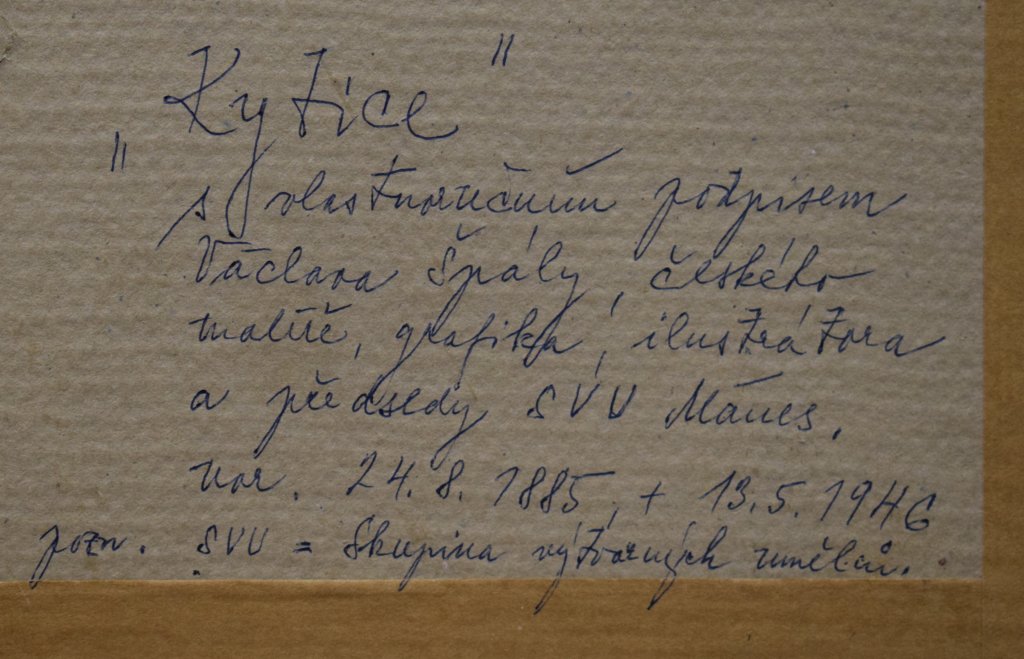 „Kytice"
s vlastnoručním podpisem
Václava Špály, českého
malíře, grafika, ilustrátora
a předsedy SVU Mánes,
nar. 24.8.1885, + 13.5.1946
pozn. SVU = Skupina výtvarných umělců.